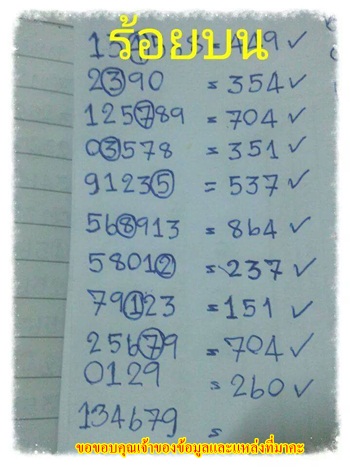 ร้อยบน
= 449 ✓
2390 = 354 ✓
125789 = 704 ✓
03578 = 351 ✓
91235 = 537 ✓
568913 = 864 ✓
58012 = 237 ✓
79123 = 151 ✓
25679 = 704 ✓
0129 = 260 ✓
134679 =
ขอขอบคุณเจ้าของข้อมูลและแหล่งที่มาคะ